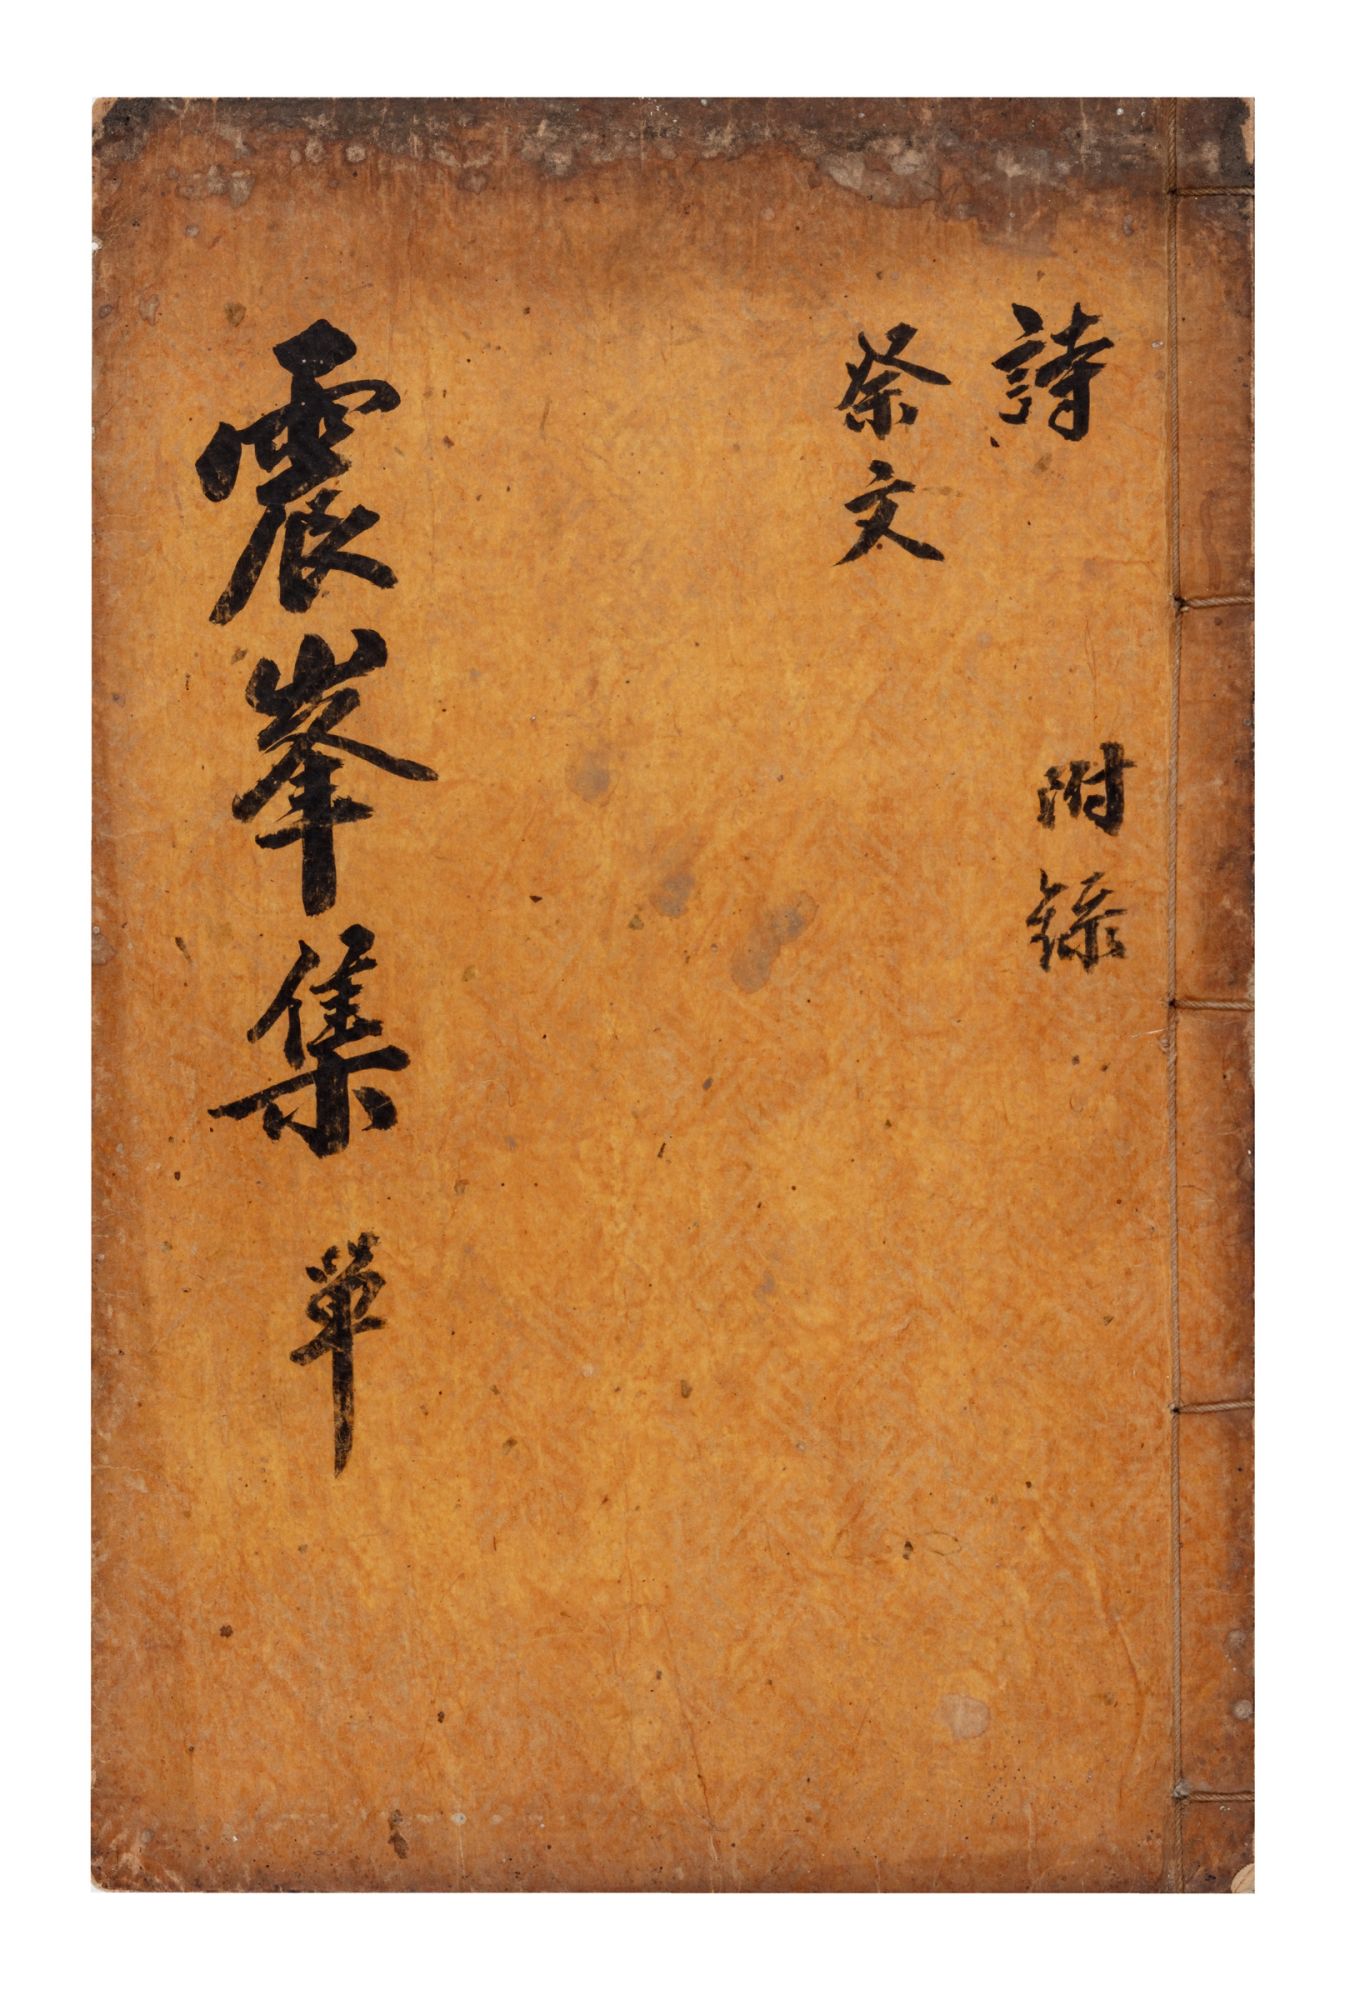 詩
附錄
祭文
震峯集 單